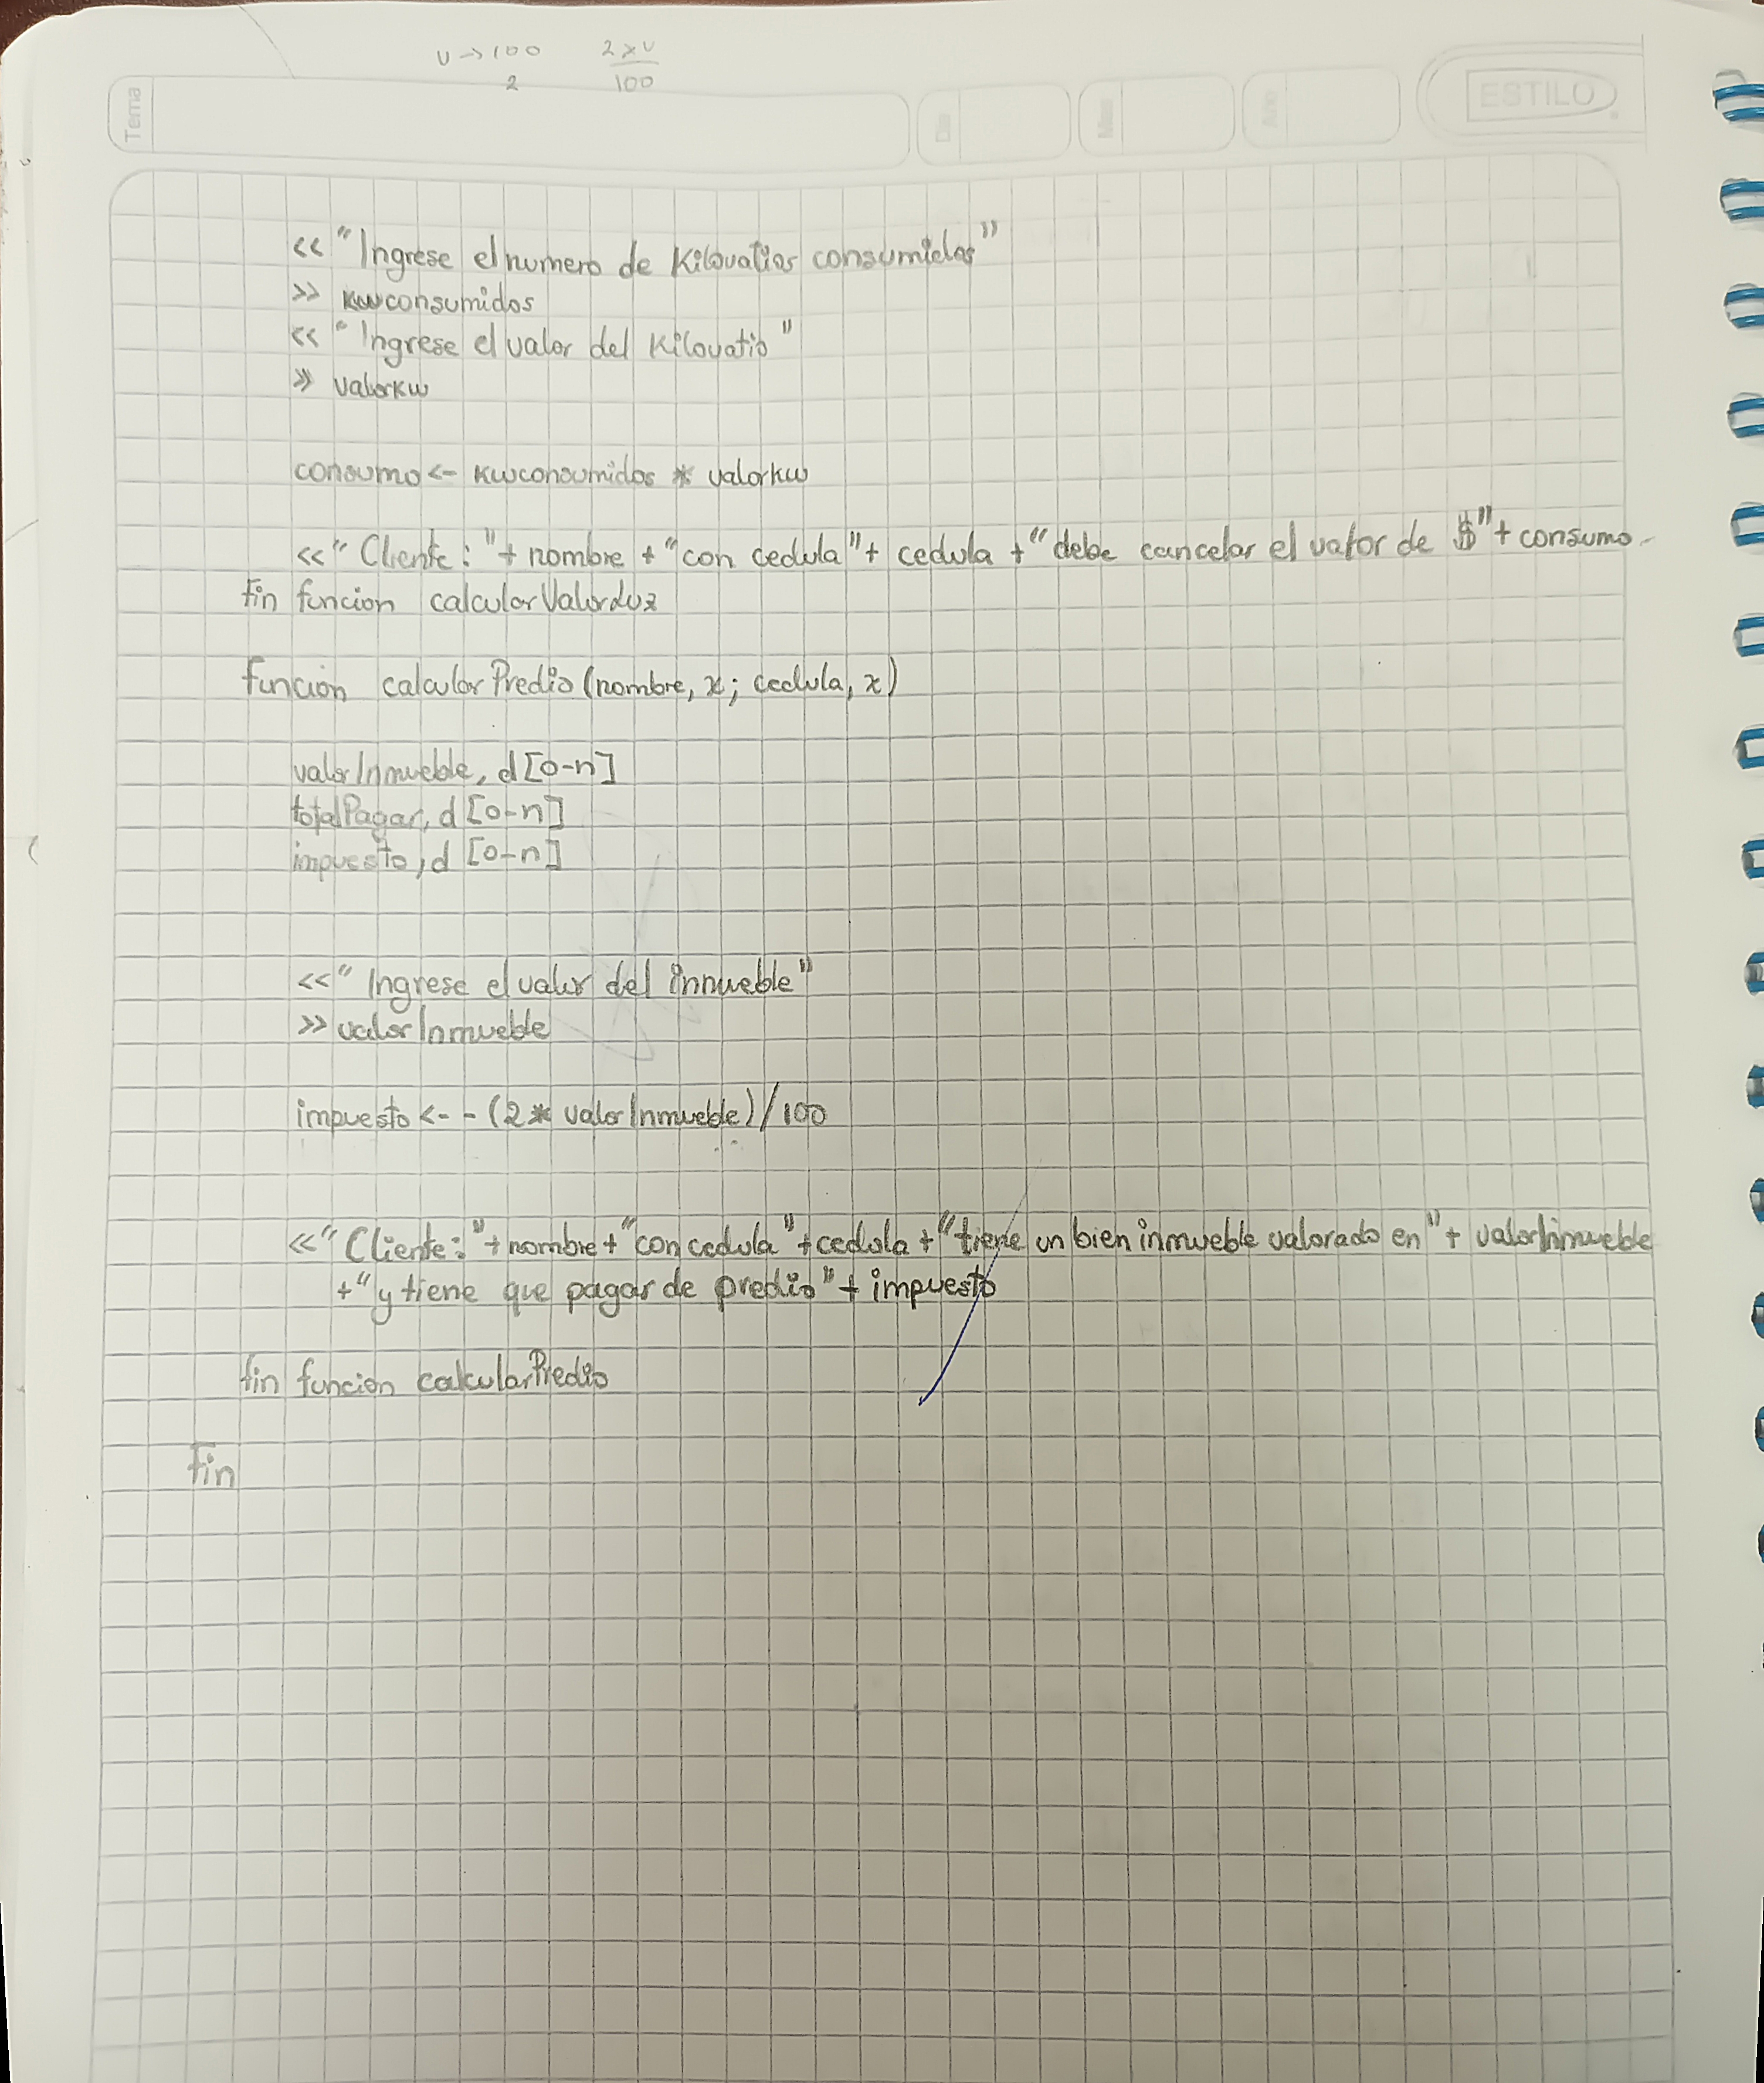 v→100 2xv
2 100
Tema Dia Mes Año ESTILO
<< "Ingrese el numero de Kilovatios consumidos"
>> kwconsumidos
<< "Ingrese el valor del Kilovatio"
>> valorkw
consumo <- kwconsumidos * valorkw
<< "Cliente: "+ nombre + "con cedula"+ cedula + "debe cancelar el valor de $"+ consumo
Fin funcion calcularValorLuz
Función calcularPredio (nombre, x; cedula, x)
valorInmueble, d [0-n]
totalPagar, d [0-n]
impuesto, d [0-n]
<<" Ingrese el valor del inmueble"
>> valorInmueble
impuesto <- - (2 * valorInmueble)/100
<<" Cliente: "+nombre+"con cedula"+cedula+"tiene un bien inmueble valorado en"+ valorInmueble
+"y tiene que pagar de predio"+ impuesto
fin funcion calcularPredio
Fin